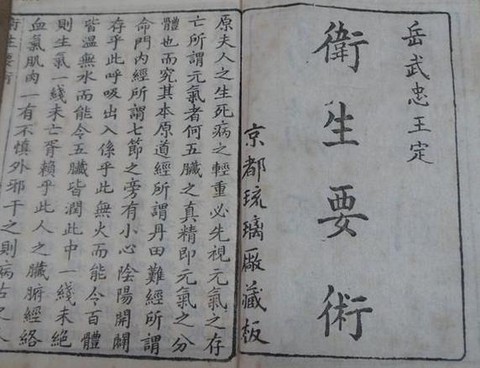 岳武忠王定
衛生要術
京都琉璃廠藏板
原夫人之生死病之輕重必先視元氣之存
亡所謂元氣者何五臟之真精即元氣之分
體也而究其本原道經所謂丹田難經所謂
命門內經所謂七節之旁有小心陰陽開闢
存乎此呼吸出入係乎此無火而能令百體
皆溫無水而能令五臟皆潤此中一綫未絕
則生氣一綫未亡胥賴乎此人之臟腑經絡
血氣肌肉一有不慎外邪干之則病古之人
衛生要術